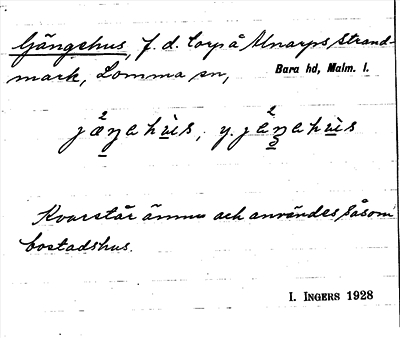 Gängehus, f. d. torp å Alnarps strand-
mark, Lomma sn, Bara hd, Malm. l.
Kvarstår ännu och användes såsom
bostadshus.
I. INGERS 1928